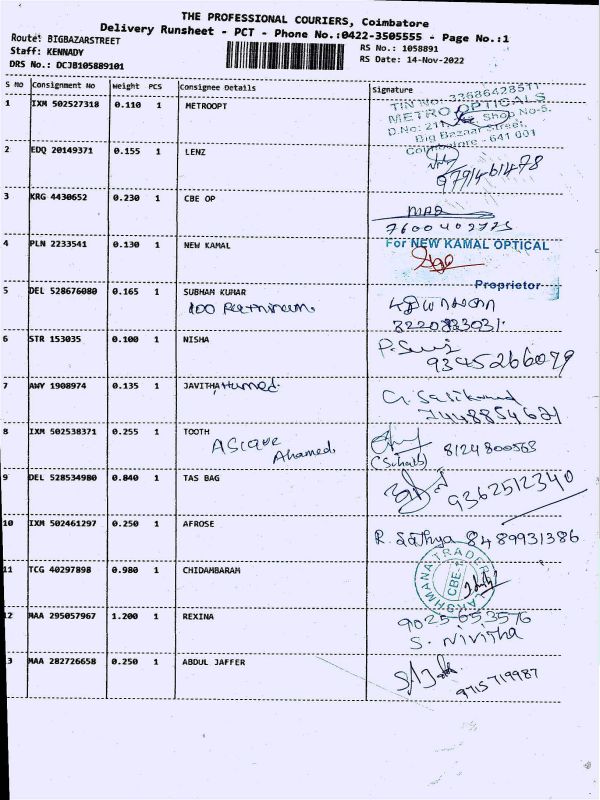 THE PROFESSIONAL COURIERS, Coimbatore
Delivery Runsheet - PCT - Phone No.:0422-3505555 - Page No.:1
Route: BIGBAZARSTREET
Staff: KENNADY
DRS No.: DCJB105889101
RS No.: 1058891
RS Date: 14-Nov-2022
S NO Consignment No Weight PCS Consignee Details Signature
1 IXM 502527318 0.110 1 METROOPT
TIN No: 33686428511
METRO OPTICALS
D.No: 21 Shop No-5,
Big Bazaar Street,
Coimbatore - 641 001
2 EDQ 20149371 0.155 1 LENZ
9791461478
3 KRG 4430652 0.230 1 CBE OP
7600402775
4 PLN 2233541 0.130 1 NEW KAMAL
For NEW KAMAL OPTICAL
Proprietor
5 DEL 528676080 0.165 1 SUBHAM KUMAR
8220833031
6 STR 153035 0.100 1 NISHA
9345266079
7 AWY 1908974 0.135 1 JAVITHA Humed
7448854621
8 IXM 502538371 0.255 1 TOOTH
ASIQUE
Ahamed
8124800563
9 DEL 528534980 0.840 1 TAS BAG
9362512340
10 IXM 502461297 0.250 1 AFROSE
R. Sathya 8489931386
11 TCG 40297898 0.980 1 CHIDAMBARAM
LAKSHMANA TRADERS
CBE-1
12 MAA 295057967 1.200 1 REXINA
9025653576
S. Nivitha
13 MAA 282726658 0.250 1 ABDUL JAFFER
9715719987